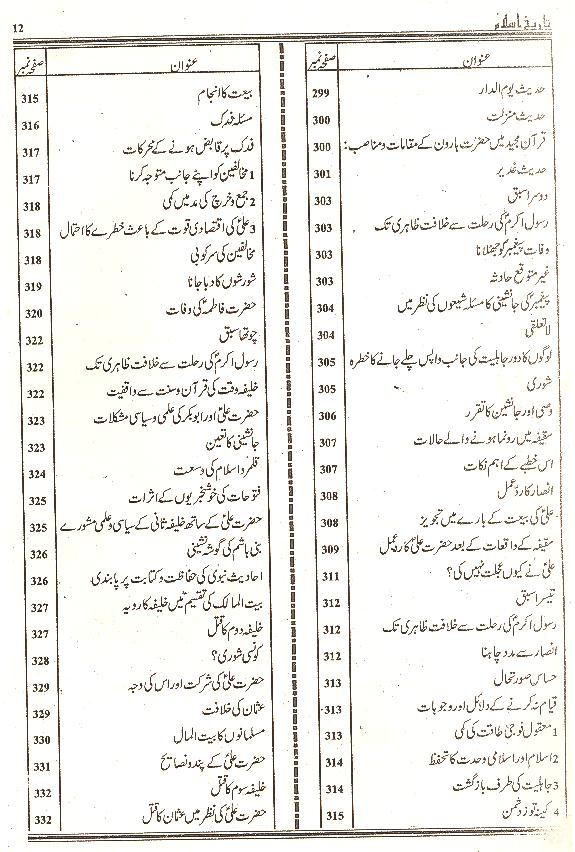 تاریخ اسلام 12
عنوان صفحہ نمبر
حدیث یوم الدار 299
حدیث منزلت 300
قرآن مجید میں حضرت ہارون کے مقامات و مناصب: 300
حدیث غدیر 301
دوسرا سبق 303
رسول اکرمؐ کی رحلت سے خلافت ظاہری تک 303
وفات پیغمبرؐ کو جھٹلانا 303
غیر متوقع حادثہ 303
پیغمبرؐ کی جانشینی کا مسئلہ شیعوں کی نظر میں 304
لا تعلقی 304
لوگوں کا دور جاہلیت کی جانب واپس چلے جانے کا خطرہ 305
شوریٰ 305
وصی اور جانشین کا تقرر 306
سقیفہ میں رونما ہونے والے حالات 307
اس خطبے کے اہم نکات 307
انصار کا ردعمل 308
علیؑ کی بیعت کے بارے میں تجویز 308
سقیفہ کے واقعات کے بعد حضرت علیؑ کا ردعمل 309
علیؑ نے کیوں عجلت نہیں کی؟ 311
تیسرا سبق 312
رسول اکرمؐ کی رحلت سے خلافت ظاہری تک 312
انصار سے مدد چاہنا 312
حساس صورتحال 313
قیام نہ کرنے کے دلائل اور وجوہات 313
1 معقول فوجی طاقت کی کمی 313
2 اسلام اور اسلامی وحدت کا تحفظ 314
3 جاہلیت کی طرف بازگشت 314
4 کینہ توز دشمن 315
عنوان صفحہ نمبر
بیعت کا انجام 315
مسئلہ فدک 316
فدک پر قابض ہونے کے محرکات 317
1 مخالفین کو اپنے جانب متوجہ کرنا 317
2 جمع و خرچ کی مد میں کمی 318
3 علیؑ کی اقتصادی قوت کے باعث خطرے کا احتمال 318
مخالفین کی سرکوبی 318
شورشوں کا دبا جانا 319
حضرت فاطمہؑ کی وفات 320
چوتھا سبق 322
رسول اکرمؐ کی رحلت سے خلافت ظاہری تک 322
خلیفہ وقت کی قرآن و سنت سے واقفیت 322
حضرت علیؑ اور ابوبکر کی علمی و سیاسی مشکلات 323
جانشینی کا تعین 323
قلمرو اسلام کی وسعت 324
فتوحات کی خوشخبریوں کے اثرات 325
حضرت علیؑ کے ساتھ خلیفہ ثانی کے سیاسی و علمی مشورے 325
بنی ہاشم کی گوشہ نشینی 326
احادیث نبوی کی حفاظت و کتابت پر پابندی 326
بیت المال کی تقسیم میں خلیفہ کا رویہ 327
خلیفہ دوم کا قتل 327
کونسی شوریٰ؟ 328
حضرت علیؑ کی شرکت اور اس کی وجہ 329
عثمان کی خلافت 329
مسلمانوں کا بیت المال 330
حضرت علیؑ کے پند و نصایح 331
خلیفہ سوم کا قتل 332
حضرت علیؑ کی نظر میں عثمان کا قتل 332